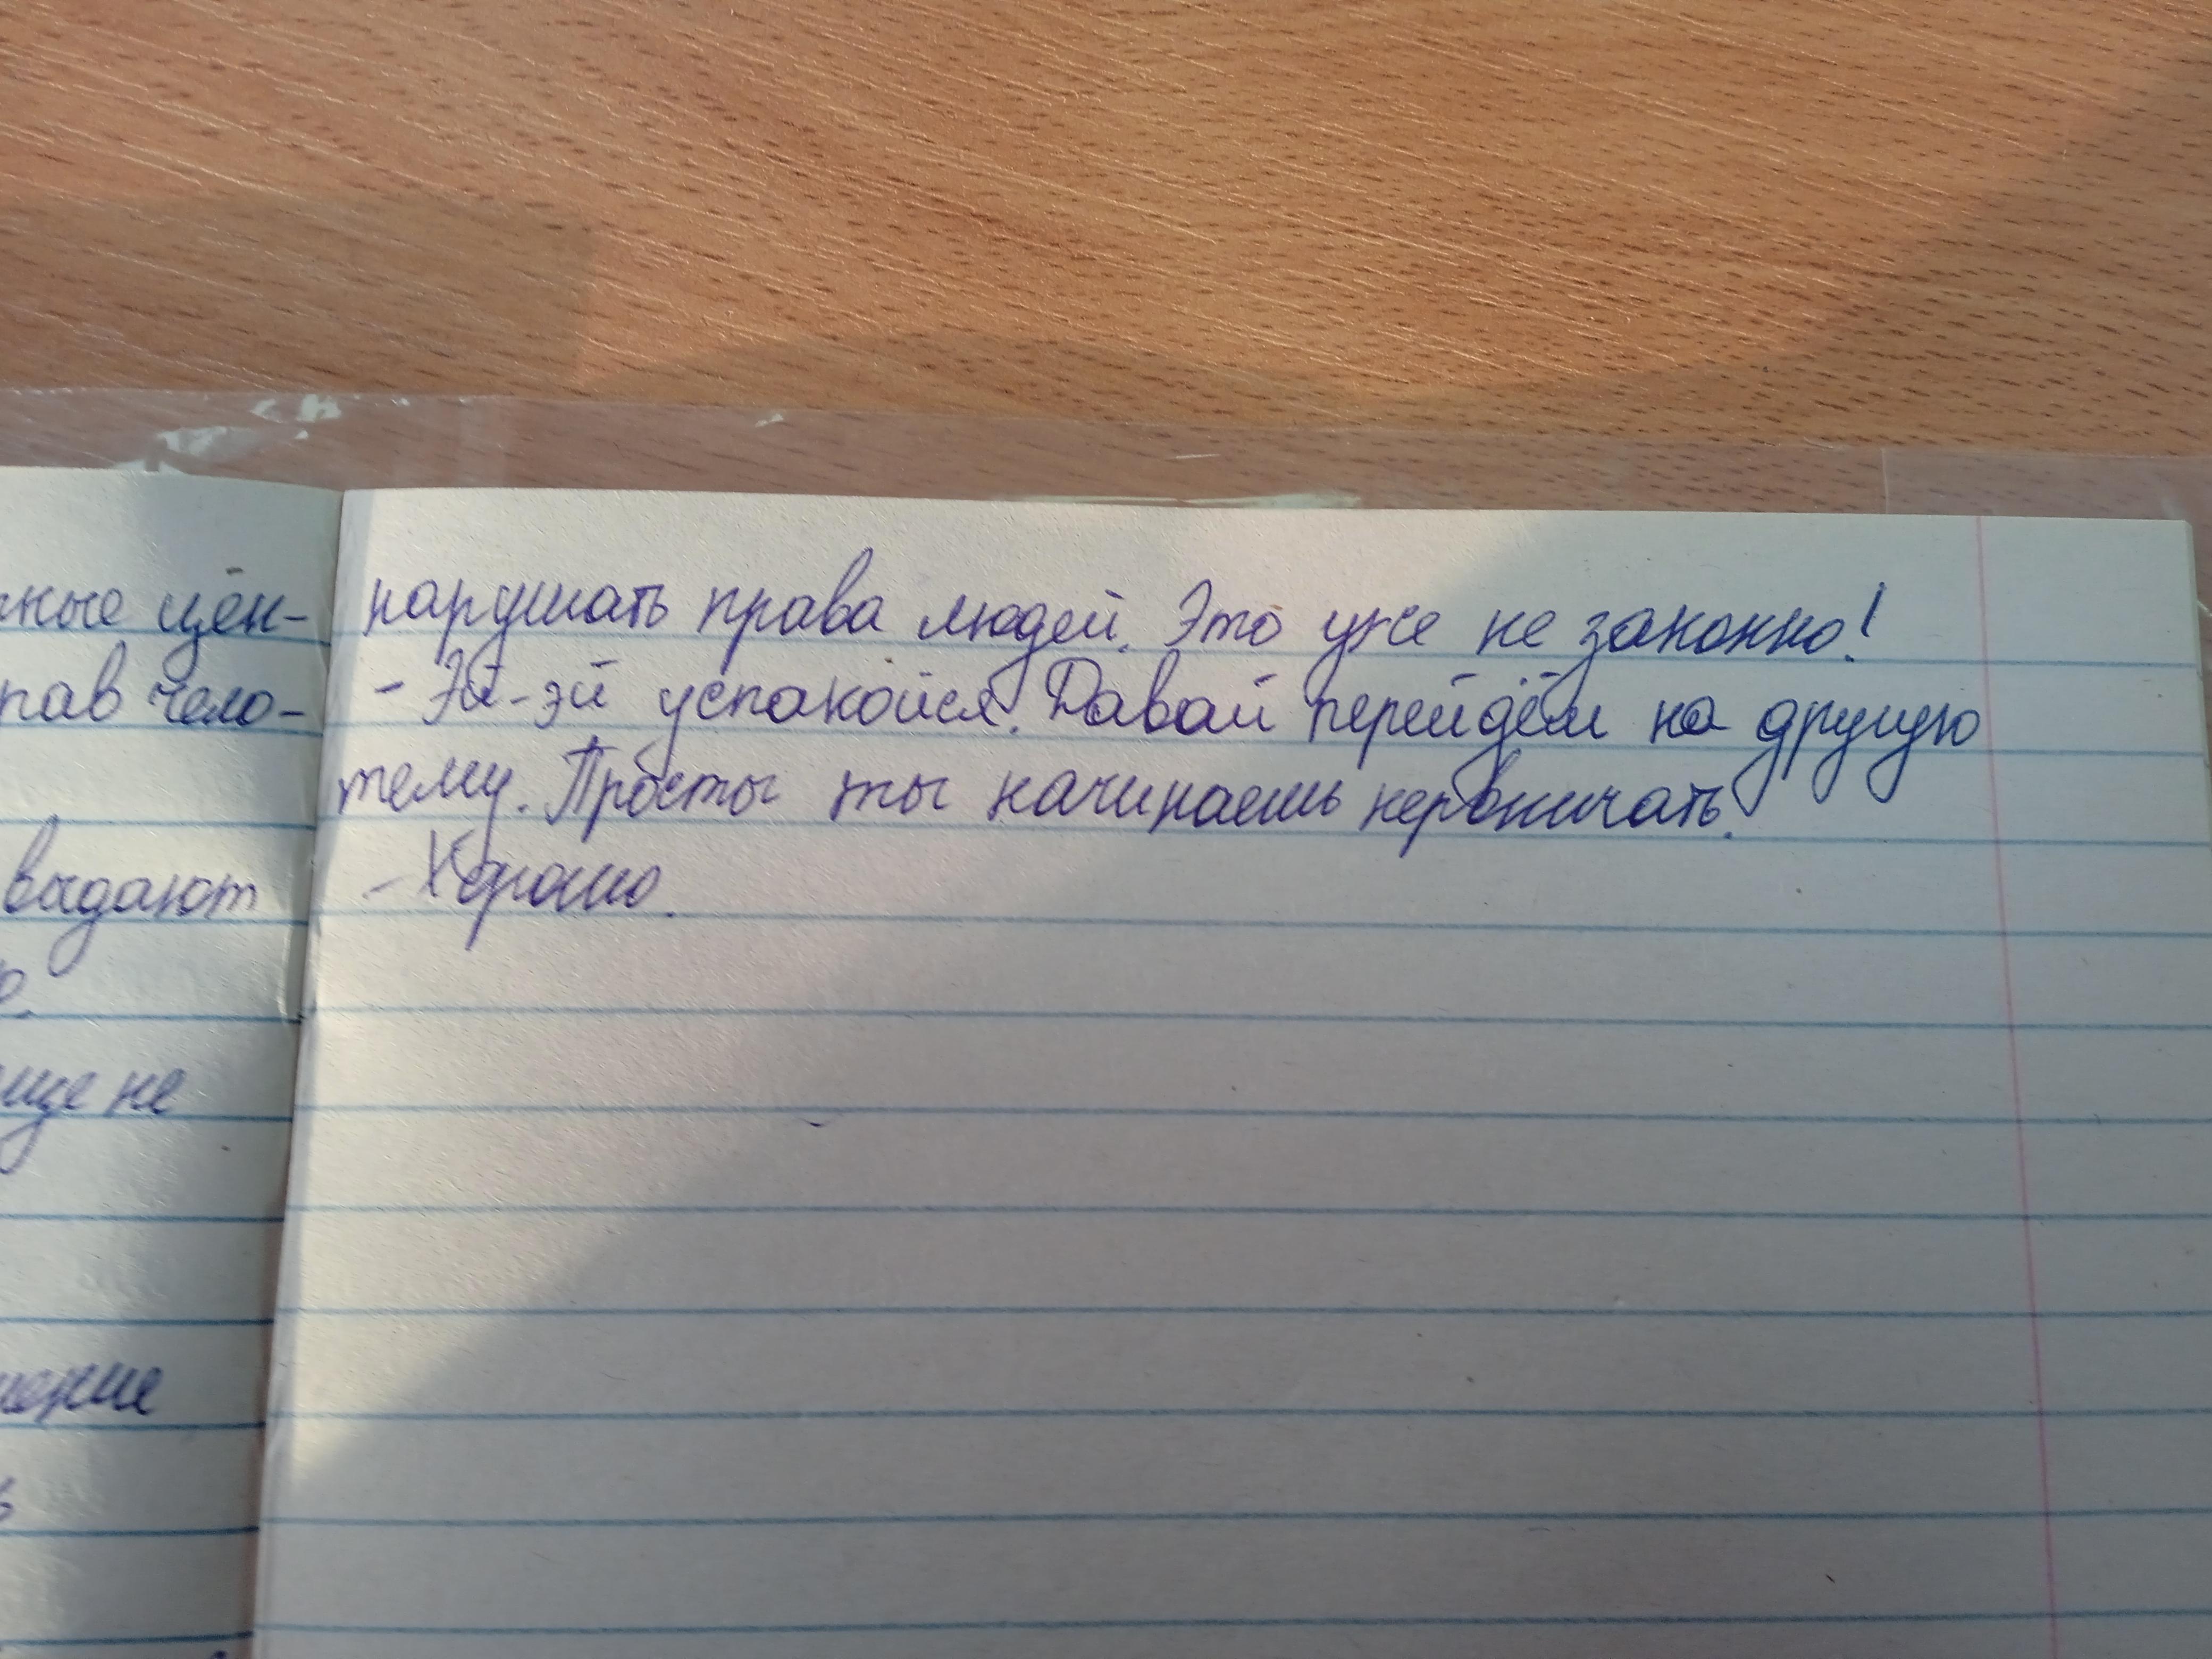 ные цен-
рав чело-
выдают
ще не
нарушать права людей. Это уже не законно!
- Эй-эй успакойся. Давай перейдём на другую
тему. Просты ты начинаешь нервничать.
- Хорошо.